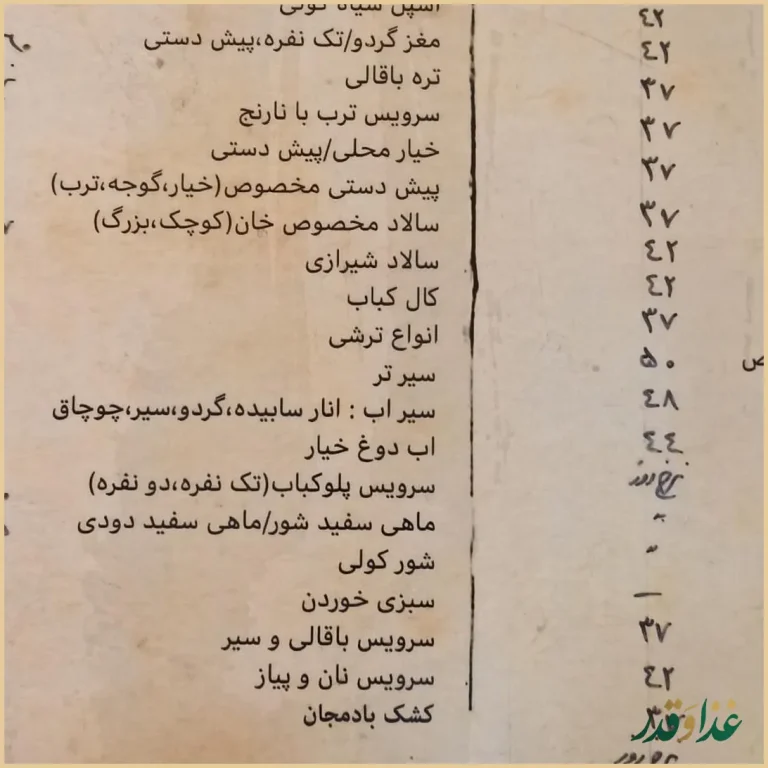 مغز گردو/تک نفره،پیش دستی ۴۲
تره باقالی ۳۷
سرویس ترب با نارنج ۳۷
خیار محلی/پیش دستی ۳۷
پیش دستی مخصوص(خیار،گوجه،ترب) ۳۷
سالاد مخصوص خان(کوچک،بزرگ) ۴۲
سالاد شیرازی ۴۲
کال کباب ۳۷
انواع ترشی ۵۰
سیر تر ۴۸
سیر اب : انار سابیده،گردو،سیر،چوچاق ۴۴
اب دوغ خیار نرخ روز
سرویس پلوکباب(تک نفره،دو نفره) "
ماهی سفید شور/ماهی سفید دودی "
شور کولی —
سبزی خوردن ۳۷
سرویس باقالی و سیر ۴۲
سرویس نان و پیاز
کشک بادمجان
غذا و قدر